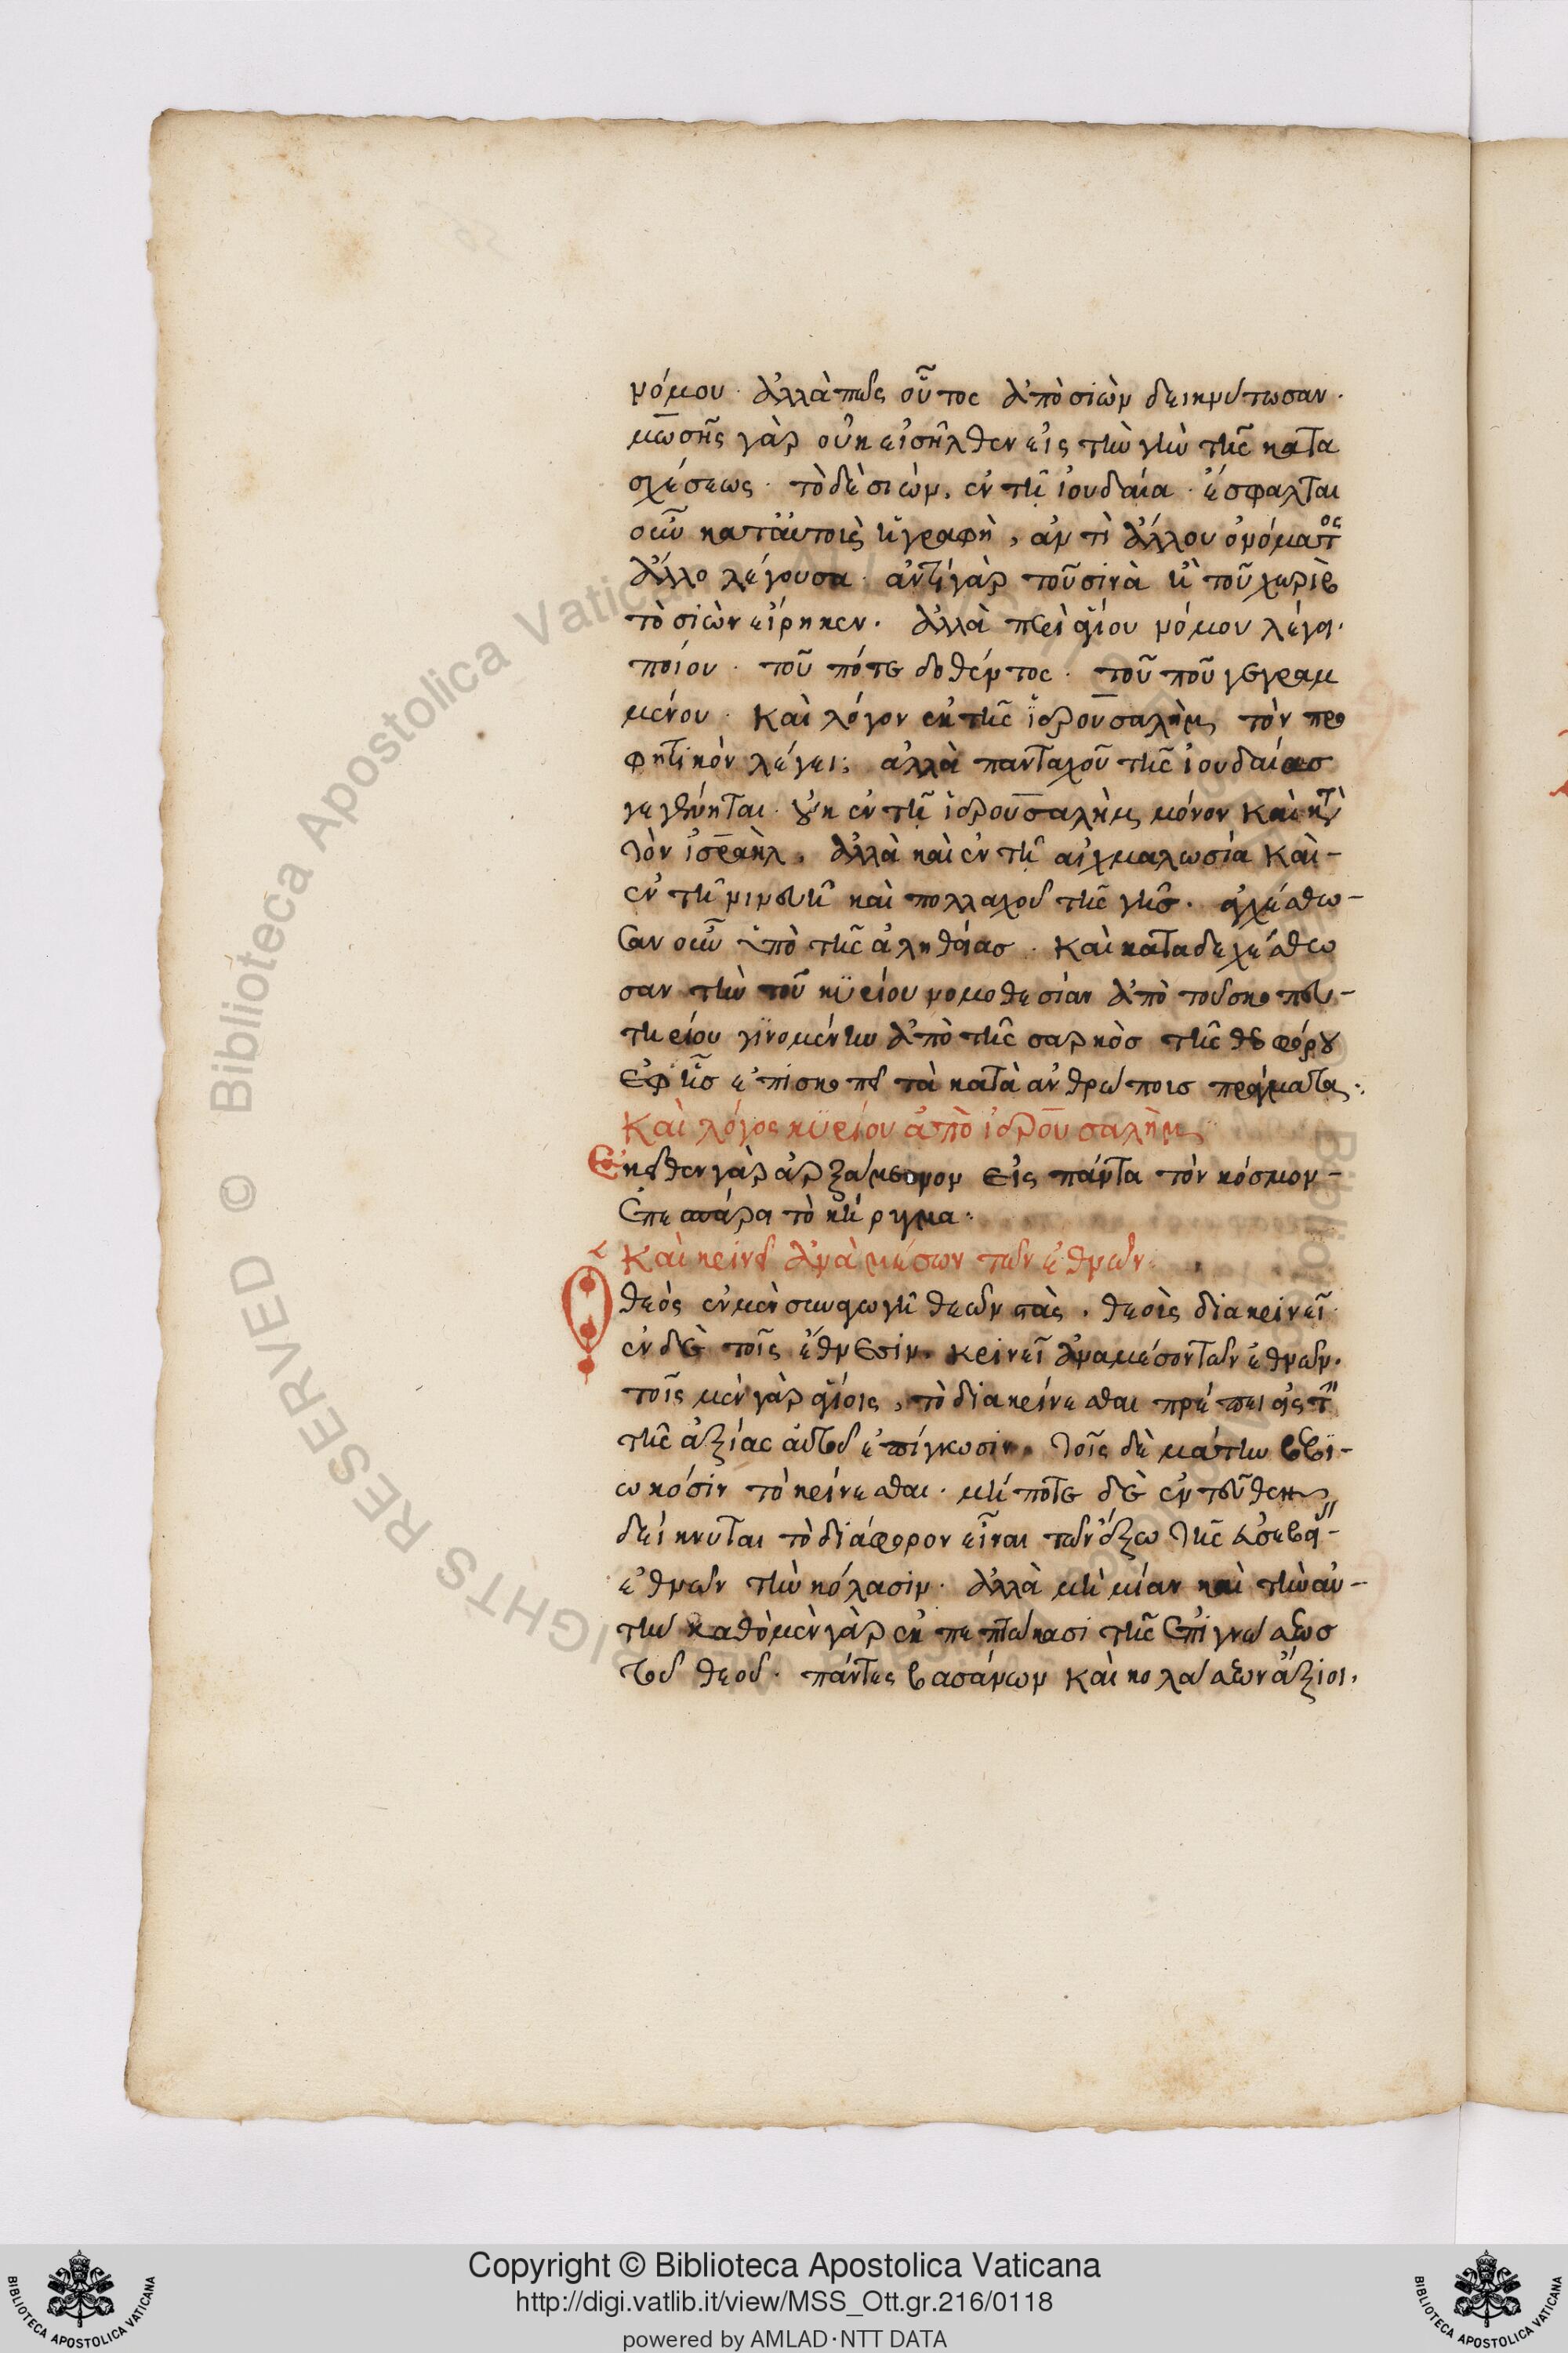 νόμου · ἀλλὰ πῶς οὗτος ἀπὸ σιὼν δεικνύτωσαν ·
μωσῆς γὰρ οὐκ εἰσῆλθεν εἰς τὴν γῆν τῆς κατα
σχέσεως · τὸ δὲ σιὼν, ἐν τῆ ἰουδαία · ἔσφαλται
οὖν κατ' αὐτοὺς ἡ γραφὴ, ἀντὶ ἄλλου ὀνόματος
ἄλλο λέγουσα · ἀντὶ γὰρ τοῦ σινὰ ἢ τοῦ χωρὶβ
τὸ σιὼν εἴρηκεν · ἀλλὰ περὶ ποίου νόμου λέγει ·
ποίου · τοῦ πότε δοθέντος · τοῦ ποῦ γεγραμ
μένου · Καὶ λόγον ἐκ τῆς ἱερουσαλὴμ τὸν προ
φητικὸν λέγει; ἀλλὰ πανταχοῦ τῆς ἰουδαίασ
γεγένηται · οὐκ ἐν τῆ ἱερουσαλὴμ μόνον Καὶ
τὸν ἰσραὴλ, ἀλλὰ καὶ ἐν τῆ αἰχμαλωσία Καὶ -
ἐν τῆ νινευῆ καὶ πολλαχοῦ τῆς γῆσ · ἀγχέσθω -
σαν οὖν ὑπὸ τῆς ἀληθείασ · Καὶ καταδεχέσθω
σαν τὴν τοῦ κυρίου νομοθεσίαν ἀπὸ τοῦ σκοπευ -
τηρίου γινομένην ἀπὸ τῆς σαρκὸσ τῆς θεοφόρου
ἐφ' ἧσ ἐπισκοπεῖ τὰ κατὰ ἀνθρώποισ πράγματα ·
Καὶ λόγος κυρίου ἀπὸ ἱερουσαλὴμ
Ἐκεῖθεν γὰρ ἀρξάμενον εἰς πάντα τὸν κόσμον -
ἔπεσπάρη τὸ κήρυγμα ·
Καὶ κρινεῖ ἀνὰ μέσων τῶν ἐθνῶν
Ὁ θεὸς ἐν μὲν συναγωγῆ θεῶν στὰς, θεοὺς διακρινεῖ ·
ἐν δὲ τοῖς ἔθνεσιν, κρινεῖ ἀναμέσον τῶν ἐθνῶν ·
τοῖς μὲν γὰρ ἁγίοις, τὸ διακρίνεσθαι πρέπει εἰς τὴν
τῆς ἀξίας αὐτῶν ἐπίγνωσιν, τοῖς δὲ μάτην βεβι -
ωκόσιν τὸ κρίνεσθαι · μήποτε δὲ ἐντεῦθεν
δείκνυται τὸ διάφορον εἶναι τῶν ἔξω τῆς εὐσεβείας -
ἐθνῶν τὴν κόλασιν · ἀλλὰ μὴ μίαν καὶ τὴν αὐ -
τὴν καθὸ μὲν γὰρ ἐκπεπτώκασι τῆς ἐπιγνώσεωσ
τοῦ θεοῦ · πάντες βασάνων Καὶ κολάσεων ἄξιοι,
Copyright © Biblioteca Apostolica Vaticana
http://digi.vatlib.it/view/MSS_Ott.gr.216/0118
powered by AMLAD·NTT DATA